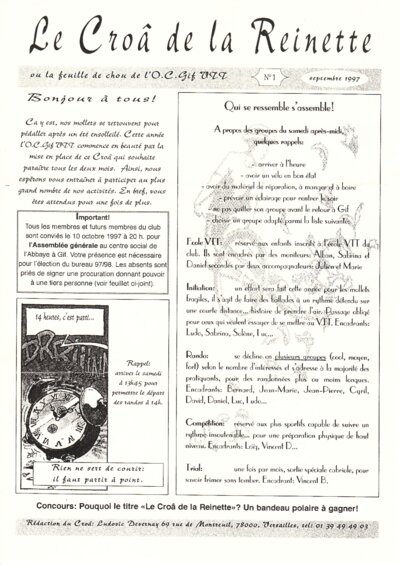 Le Croâ de la Reinette
ou la feuille de chou de l'O.C.Gif VTT
N°1
septembre 1997
Bonjour à tous!
Ca y est, nos mollets se retrouvent pour
pédaller après un été ensolleilé. Cette année
l'O.C.Gif VTT commence en beauté par la
mise en place de ce Croâ qui souhaite
paraître tous les deux mois. Ainsi, nous
espérons vous entraîner à participer au plus
grand nombre de nos activités. En bref, vous
êtes attendus pour une fois de plus.
Important!
Tous les membres et futurs membres du club
sont conviés le 10 octobre 1997 à 20 h. pour
l'Assemblée générale au centre social de
l'Abbaye à Gif. Votre présence est nécessaire
pour l'élection du bureau 97/98. Les absents sont
priés de signer une procuration donnant pouvoir
à une tiers personne (voir feuille ci-joint).
14 heures, c'est parti...
Rappel:
arrivez le samedi
à 13h45 pour
permettre le départ
des randos à 14h.
Rien ne sert de courir:
il faut partir à point.
Qui se ressemble s'assemble!
A propos des groupes du samedi après-midi,
quelques rappels:
- arriver à l'heure
- avoir un vélo en bon état
- avoir du matériel de réparation, à manger et à boire
- prévoir un éclairage pour rentrer le soir
- ne pas quitter son groupe avant le retour à Gif
- choisir un groupe adapté parmi la liste suivante:
l'école VTT: réservé aux enfants inscrits à l'école VTT du
club. Ils sont encadrés par des moniteurs Alban, Sabrina et
Daniel secondés par deux accompagnateurs: Julien et Marie
Initiation: un effort sera fait cette année pour les mollets
fragiles, il s'agit de faire des ballades à un rythme détendu sur
une courte distance... histoire de prendre l'air. Passage obligé
pour ceux qui veulent essayer de se mettre au VTT. Encadrants:
Ludo, Sabrina, Solène, Luc...
Rando: se décline en plusieurs groupes (cool, moyen,
fort) selon le nombre d'intéressés et s'adresse à la majorité des
pratiquants, pour des randonnées plus ou moins longues.
Encadrants: Bernard, Jean-Marie, Jean-Pierre, Cyril,
David, Daniel, Luc, Ludo...
Compétition: réservé aux plus sportifs capable de suivre un
rythme insoutenable... pour une préparation physique de haut
niveau. Encadrants: Loïg, Vincent D...
Trial: une fois par mois, sortie spéciale cabriole, pour
savoir frimer sans tomber. Encadrant: Vincent B.
Concours: Pouquoi le titre «Le Croâ de la Reinette»? Un bandeau polaire à gagner!
Rédaction du Croâ: Ludovic Devernay 69 rue de Montreuil, 78000, Versailles, tel: 01 39 49 49 03